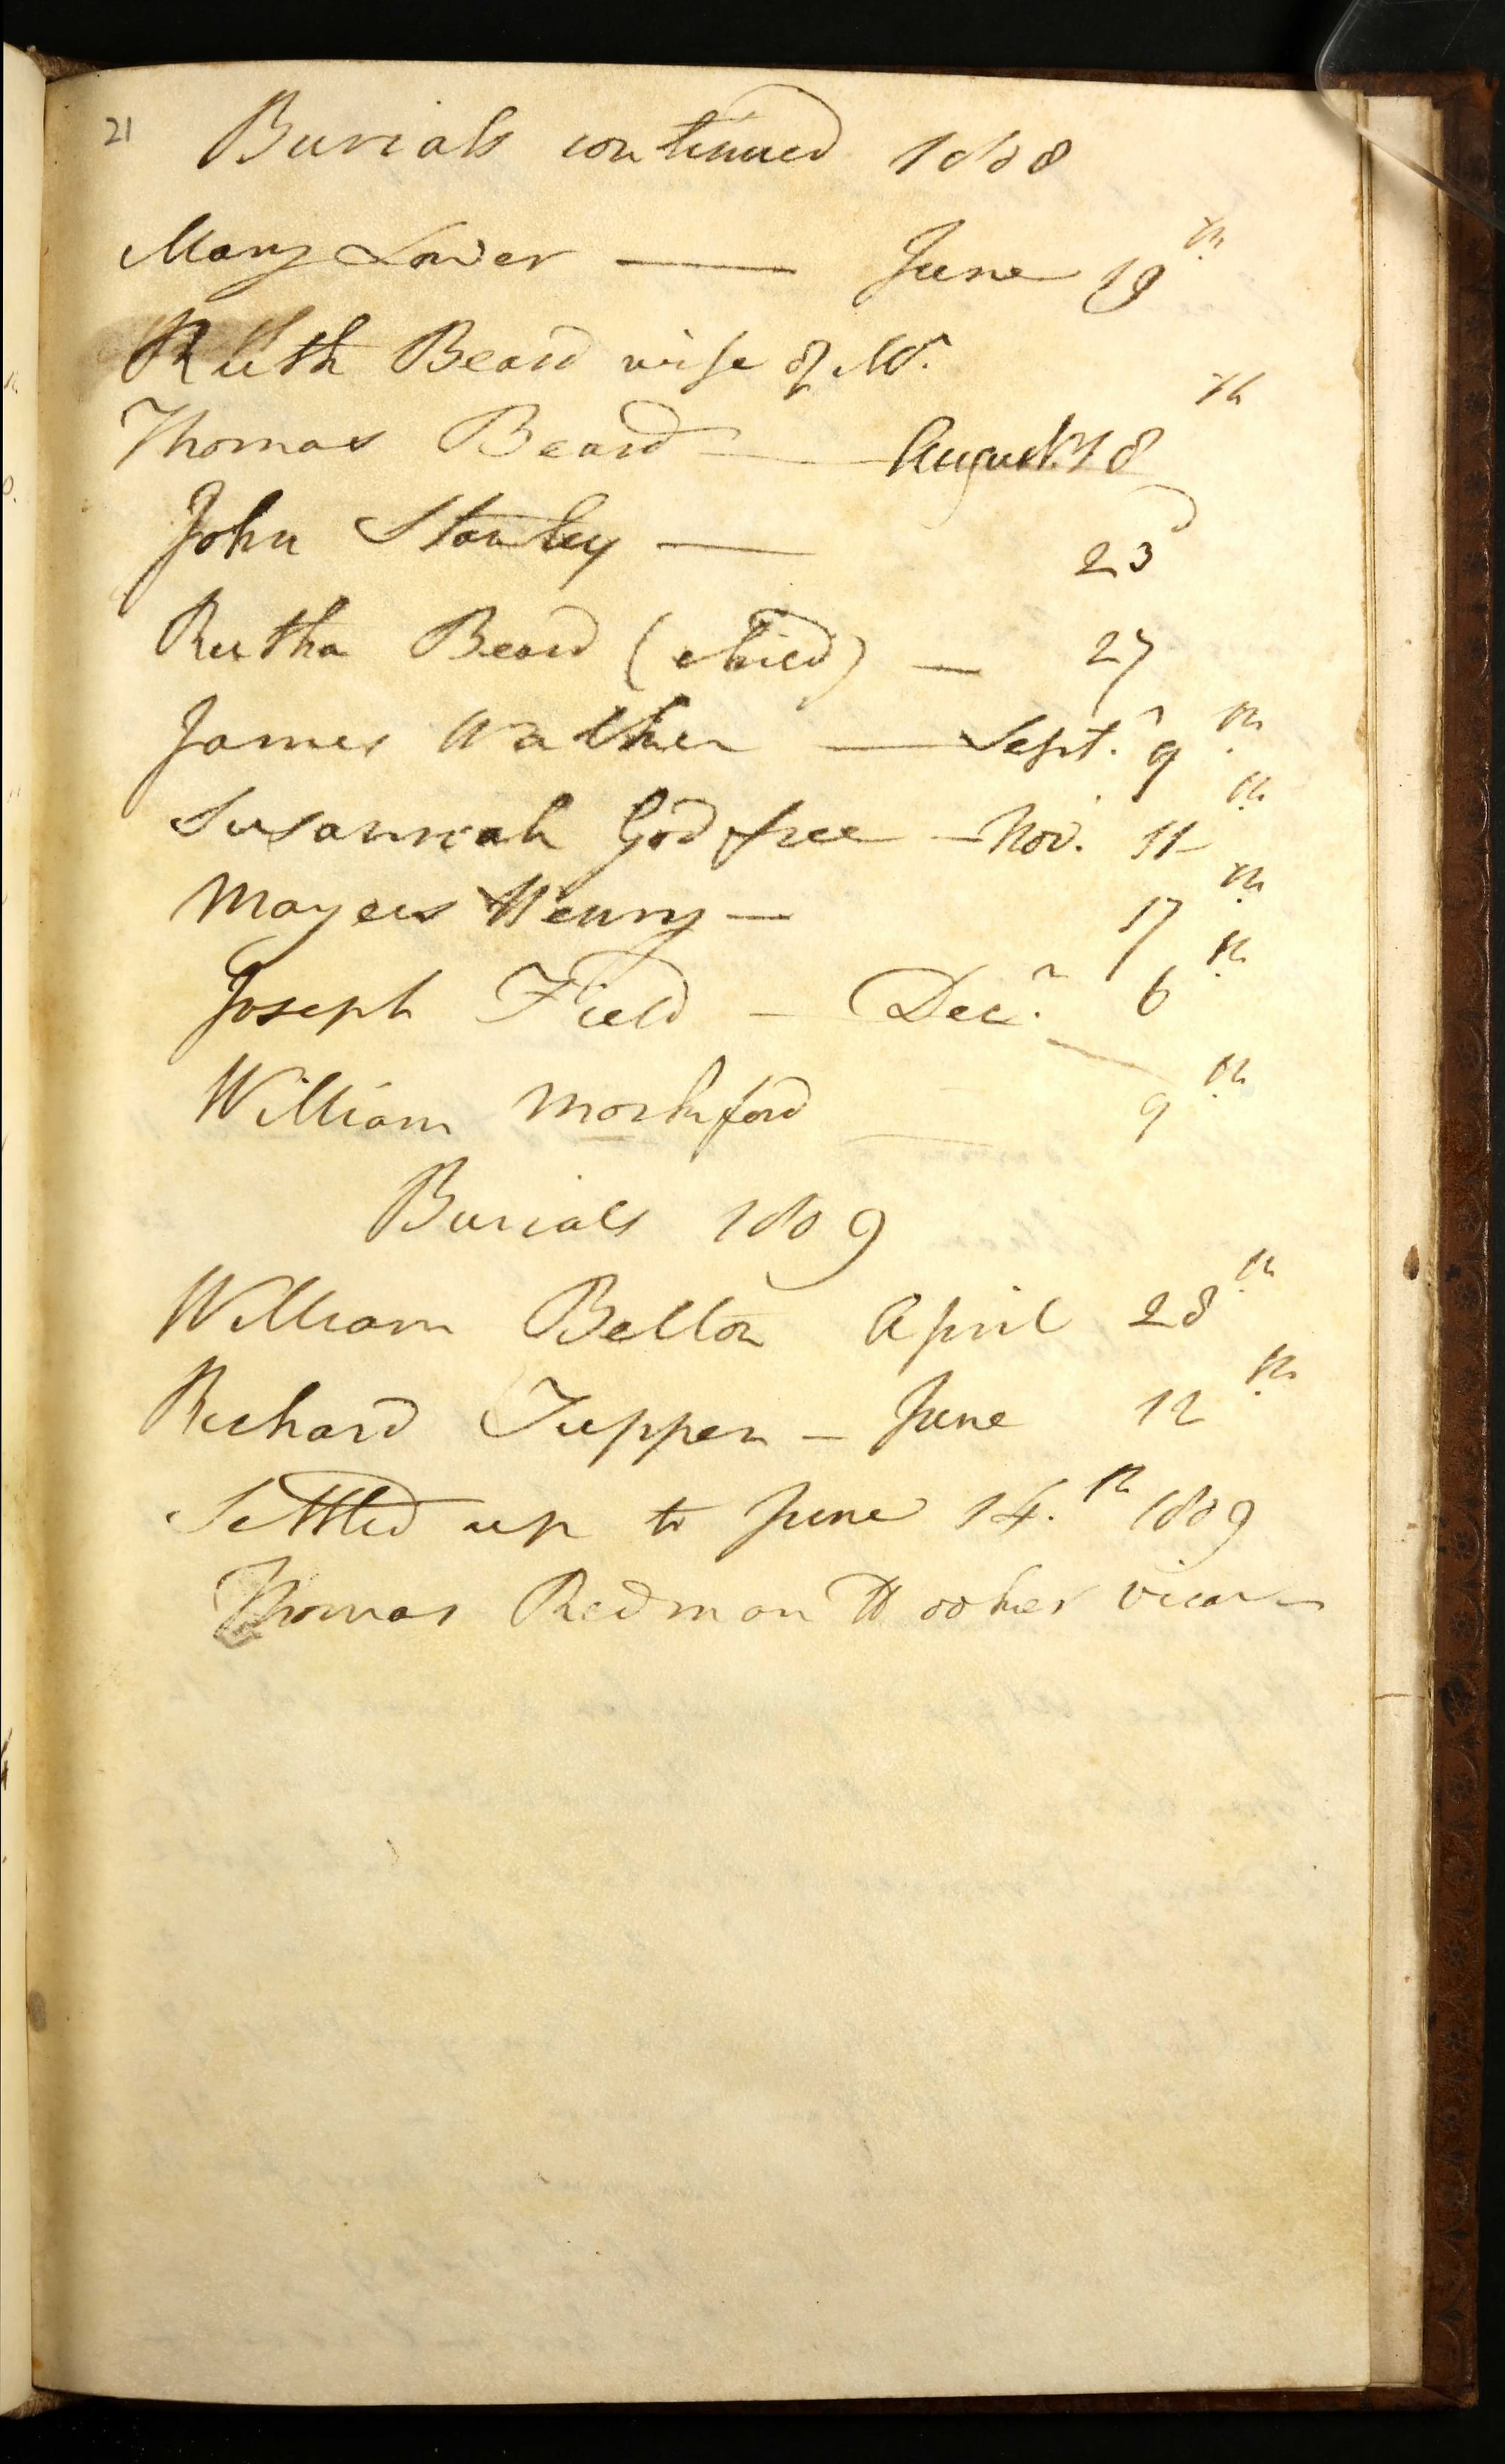 21
Burials continued 1808
Mary Lower — June 19th
Ruth Beard wife of Mr.
Thomas Beard — August 18th
John Stanley — 23d
Rutha Beard (child) — 27
James Walker — Septr. 9th
Susannah Godfree — Nov. 11th
Mayers Henry — 17th
Joseph Field — Decr. 6th
William 9th
Burials 1809
William Belton April 28th
Richard Tupper — June 12th
Settled up to June 14th 1809
Thomas Redman Hooker vicar